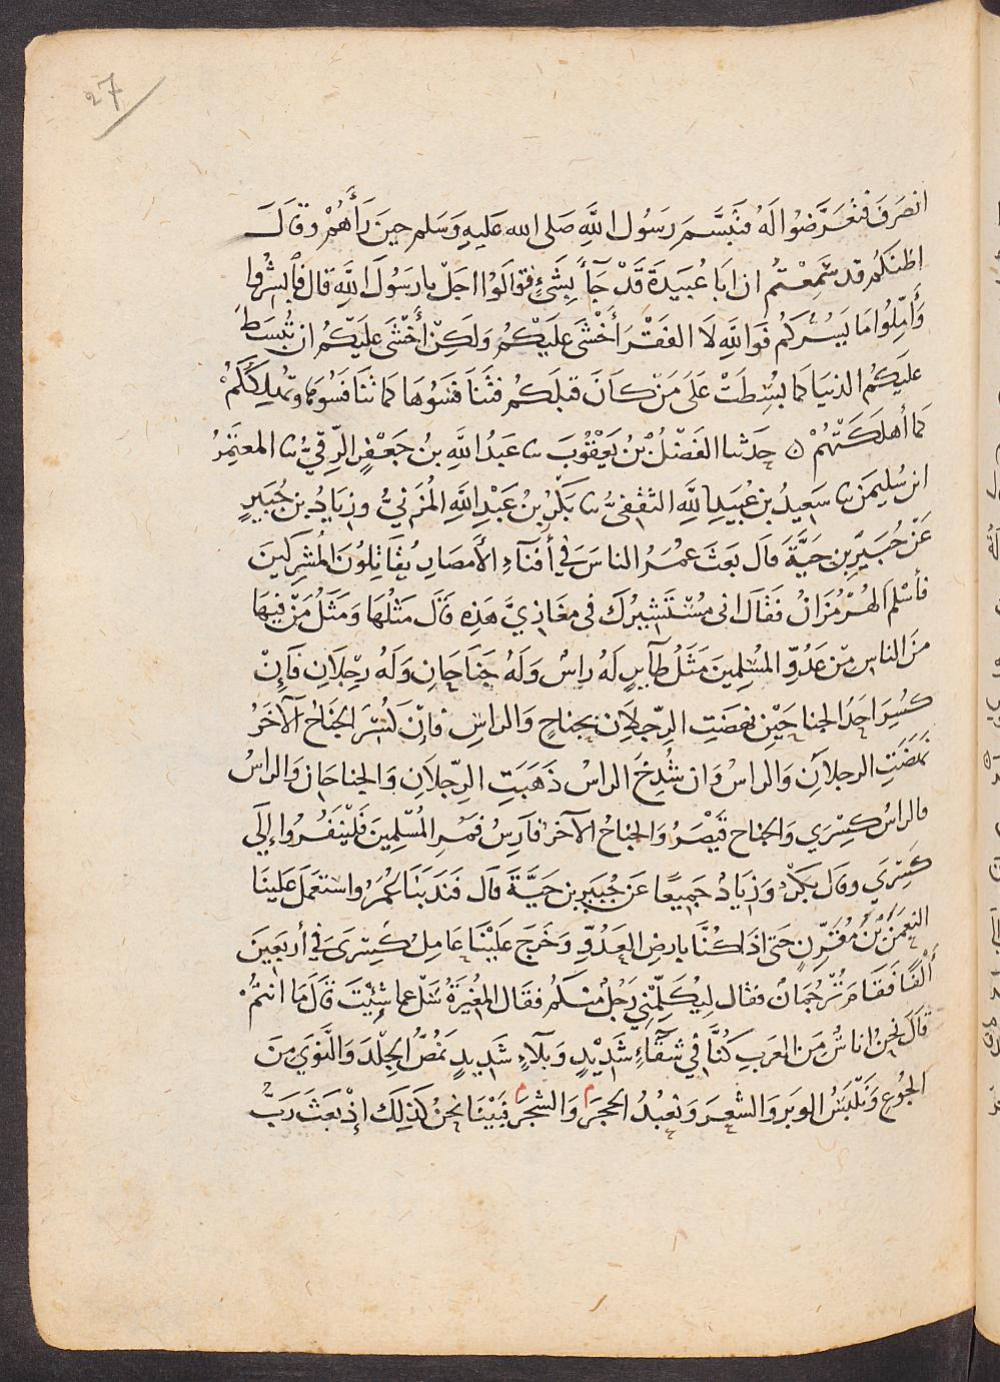 27
انصَرَفَ فتعَرَّضُوا لَهُ فتَبَسَّمَ رَسُول اللَّهِ صَلى الله عَليهِ وَسَلم حِينَ رَأَهُمْ وقَالَ
اظنكُم قد سَمِعْتُم ان ابَا عُبَيدَةَ قَدْ جَآءَ بِشَىءٍ فقوالَوْا اجَلْ يا رَسُولَ اللَّهِ قال فابشرُوا
وَأَمِّلُوا مَا يَسُرُكُم فَوَاللَّهِ لَا الفَقْرَ أَخْشَى عليَكُم وَلَكِنْ أَخْشَى عليَكُم ان تُبْسَطَ
عليَكُم الدنيَا كما بُسِطَتْ عَلَى مَنْ كَانَ قبلَكُم فتَنَافَسُوهَا كما تَنَافَسُوهَا وتُهلِكَكُمْ
كما أهلَكَتْهُمْ ٥ حدثنا الفَضْلُ بْنُ يَعْقُوبَ نا عَبدُ اللَّهِ بنُ جَعْفَرٍ الرِّقيُّ نا المعتَمِرُ
ابن سُليمَن نا سَعِيدُ بن عُبَيدِ اللَّهِ الثقفىُّ نا بَكْرُ بْنُ عَبْدِ اللَّهِ المُزَنيُّ وزِيَادُ بن جُبَيرٍ
عَنْ جُبَيرِ بن حَيَّةَ قال بَعَثَ عُمَرُ الناسَ في أفنَآءِ الأَمصَارِ يُقاتِلُونَ المُشرِكينَ
فأسْلَمَ الهُرْمُزَانُ فَقَالَ انى مُسْتَشِيرُكَ فى مغَازِيَّ هَذِهِ قَالَ مَثلُهَا وَمَثَلُ مَنْ فيهَا
مِنَ الناس مِن عَدُوِّ المُسْلِمِينَ مَثَلُ طَآيِرٍ لَهُ راسٌ وَلَهُ جَنَاحَانِ وَلَهُ رِجْلَانِ فَإِنْ
كُسِرَ احَدُ الجناحَيْنِ نهضَتِ الرِّجلَانِ بجناحٍ وَالراسِ فإنْ كُسِرَ الجَنَاحُ الآخَرُ
نهَضَتِ الرجلَانِ وَالراسُ وَان شُدِخَ الراسُ ذَهَبَتِ الرِّجلَانِ وَالجناحَانِ وَالراسُ
فالراسُ كِسْرَى وَالجناح قيْصَرُ وَالجناحُ الآخَر فارِسُ فمُرِ المُسْلِمِينَ فَلْينفُرُوا إِلَى
كِسْرَي وقال بَكْرٌ وَزِيَادٌ جَمِيعًا عَن جُبَيرِ بن حَيَّةَ قال فَنَدَبَنَا عُمَرُ واستعَمَلَ عَلينَا
النعمَنَ بْنَ مُقَرِّنٍ حَتى اذَا كُنَّا بارضِ العَدُوِّ وَخَرَجَ عَلَيْنَا عَامِلُ كِسْرَى في أربَعِينَ
أَلْفًا فَقَامَ تُرْجُمَانٌ فقال لِيُكَلِّمْنِي رَجُلٌ مِنكُم فقال المُغِيرَةُ سَلْ عما شِئْتَ قَالَ مَا انتُمْ
قَالَ نحنُ اناسٌ مِنَ العَرَبِ كُنَّا في شَقَآءٍ شَدِيْدٍ وَبَلَآءٍ شَدِيدٍ نمُصُّ الجِلْدَ وَالنَّوَي مِنَ
الجُوعِ وَنَلْبَسُ الوَبرَ وَالشعَرَ وَنعبُدُ الحجَرَ وَالشجَرَ فبَيْنَا نحنُ كذلِكَ إذْ بَعَثَ رَبُّ